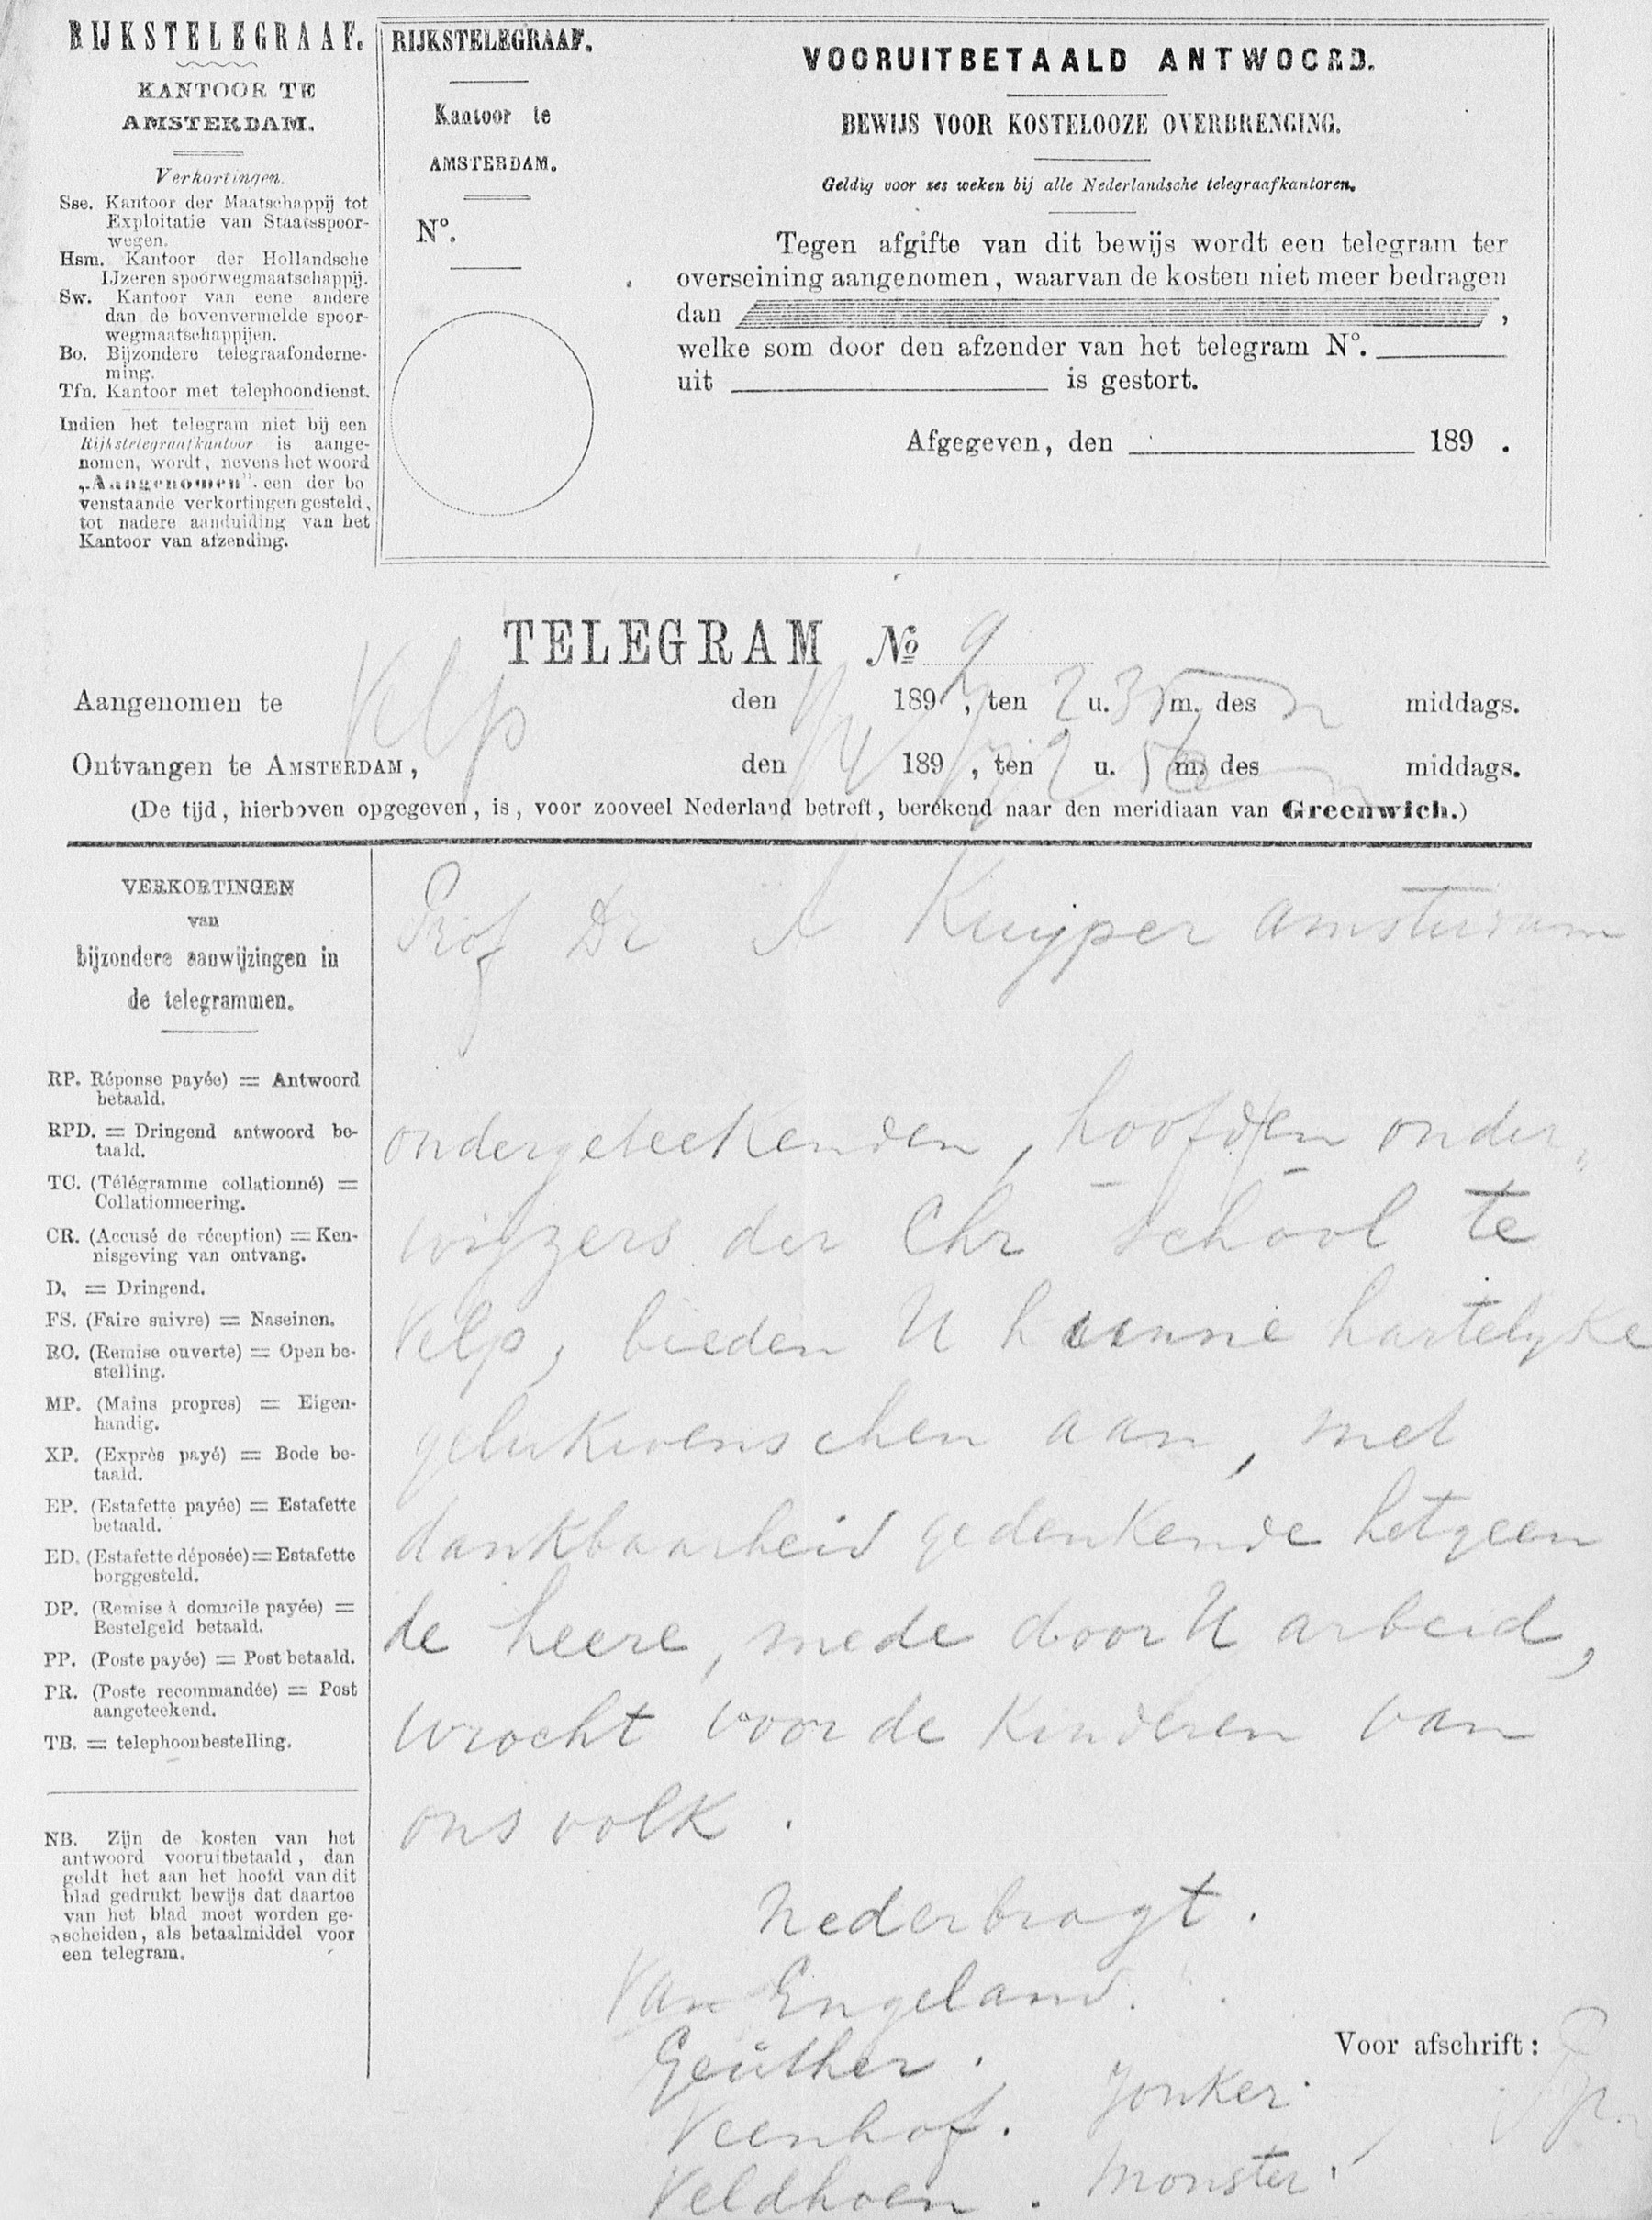 RIJKSTELEGRAAF.
KANTOOR TE
AMSTERDAM.
Verkortingen.
Sse. Kantoor der Maatschappij tot
Exploitatie van Staatsspoor-
wegen.
Hsm. Kantoor der Hollandsche
IJzeren spoorwegmaatschappij.
Sw. Kantoor van eene andere
dan de bovenvermelde spoor-
wegmaatschappijen.
Bo. Bijzondere telegraafonderne-
ming.
Tfn. Kantoor met telephoondienst.
Indien het telegram niet bij een
Rijkstelegraafkantoor is aange-
nomen, wordt, nevens het woord
„Aangenomen". een der bo
venstaande verkortingen gesteld,
tot nadere aanduiding van het
Kantoor van afzending.
RIJKSTELEGRAAF.
Kantoor te
AMSTERDAM.
N°.
VOORUITBETAALD ANTWOORD.
BEWIJS VOOR KOSTELOOZE OVERBRENGING.
Geldig voor zes weken bij alle Nederlandsche telegraafkantoren.
Tegen afgifte van dit bewijs wordt een telegram ter
overseining aangenomen, waarvan de kosten niet meer bedragen
dan ,
welke som door den afzender van het telegram N°.
uit is gestort.
Afgegeven, den 189 .
TELEGRAM No 9
Aangenomen te Velp den 1/4 189 , ten 2 u. 35 m. des n middags.
Ontvangen te AMSTERDAM, den 1/4 189 , ten 2 u. 56 m. des n middags.
(De tijd, hierboven opgegeven, is, voor zooveel Nederland betreft, berekend naar den meridiaan van Greenwich.)
VERKORTINGEN
van
bijzondere aanwijzingen in
de telegrammen.
RP. Réponse payée) = Antwoord
betaald.
RPD. = Dringend antwoord be-
taald.
TC. (Télégramme collationné) =
Collationneering.
CR. (Accusé de réception) = Ken-
nisgeving van ontvang.
D. = Dringend.
FS. (Faire suivre) = Naseinen.
RO. (Remise ouverte) = Open be-
stelling.
MP. (Mains propres) = Eigen-
handig.
XP. (Exprès payé) = Bode be-
taald.
EP. (Estafette payée) = Estafette
betaald.
ED. (Estafette déposée) = Estafette
borggesteld.
DP. (Remise à domicile payée) =
Bestelgeld betaald.
PP. (Poste payée) = Post betaald.
PR. (Poste recommandée) = Post
aangeteekend.
TB. = telephoonbestelling.
NB. Zijn de kosten van het
antwoord vooruitbetaald, dan
geldt het aan het hoofd van dit
blad gedrukt bewijs dat daartoe
van het blad moet worden ge-
scheiden, als betaalmiddel voor
een telegram.
Prof Dr A Kuyper amsterdam
ondergeteekenden, hoofd en onder-
wijzers der Chr School te
Velp, bieden U hunne hartelyke
gelukwenschen aan, met
dankbaarheid gedenkende hetgeen
de heere, mede door U arbeid,
wrocht voor de kinderen van
ons volk.
Nederbragt.
Van Engeland.
Geüther.
Veenhof. Jonker.
Veldhoen. Monster.
Voor afschrift: